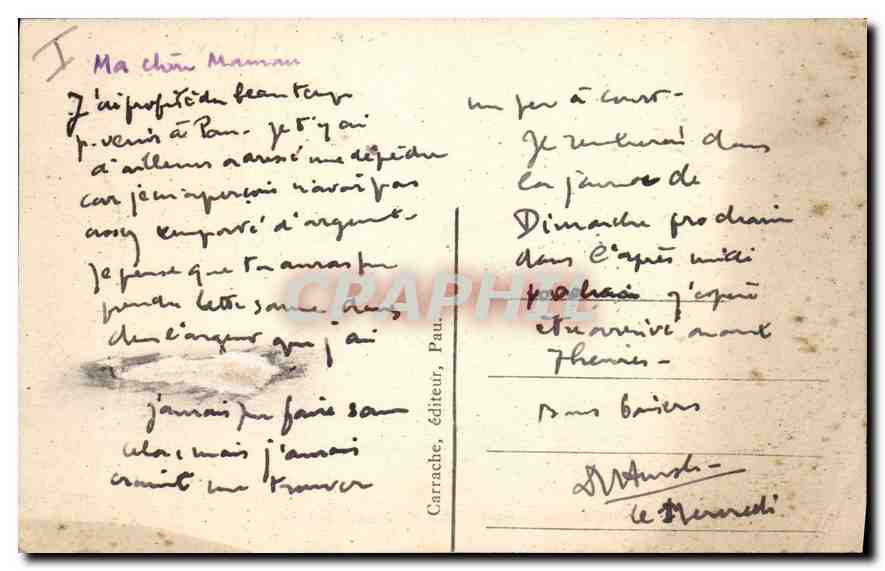 I
Ma chère Maman
J'ai profité du beau temps
p. venir à Pau. Je t'y ai
d'ailleurs adressé une dépêche
car je m'aperçois n'avoir pas
assez emporté d'argent.
Je pense que tu auras pu
prendre cette somme dans
dans l'argent que j'ai
j'aurais pu faire sans
cela, mais j'aurais
craint me trouver
un peu à court.
Je rentrerai dans
la journée de
Dimanche prochain
dans l'après midi
prochain j'espère
être arrivé avant
7 heures.
Bons baisers
le Mercredi
Carrache, éditeur, Pau.
CPAPHIL